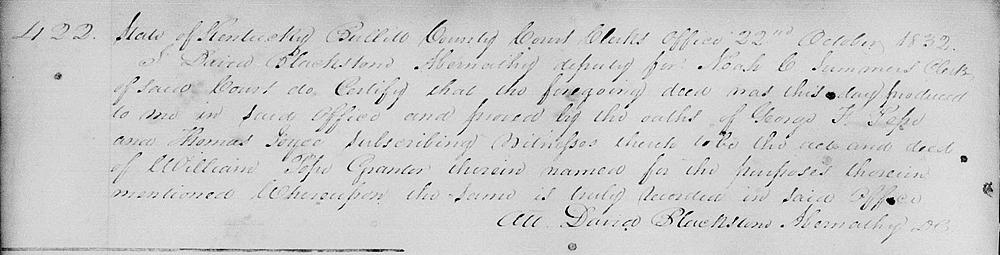 422. State of Kentucky Bullitt County Court Clerks Office 22nd October 1832.
I David Blackston Abernathy deputy for Noah C Summers Clerk
of said Court do Certify that the foregoing deed was this day produced
to me in said office and proved by the oaths of George F. Pope
and Thomas Joyce Subscribing Witnesses thereto to be the act and deed
of William Pope Grantor therein named for the purposes therein
mentioned Whereupon the same is truly recorded in said Office
Att. David Blackston Abernathy DC.